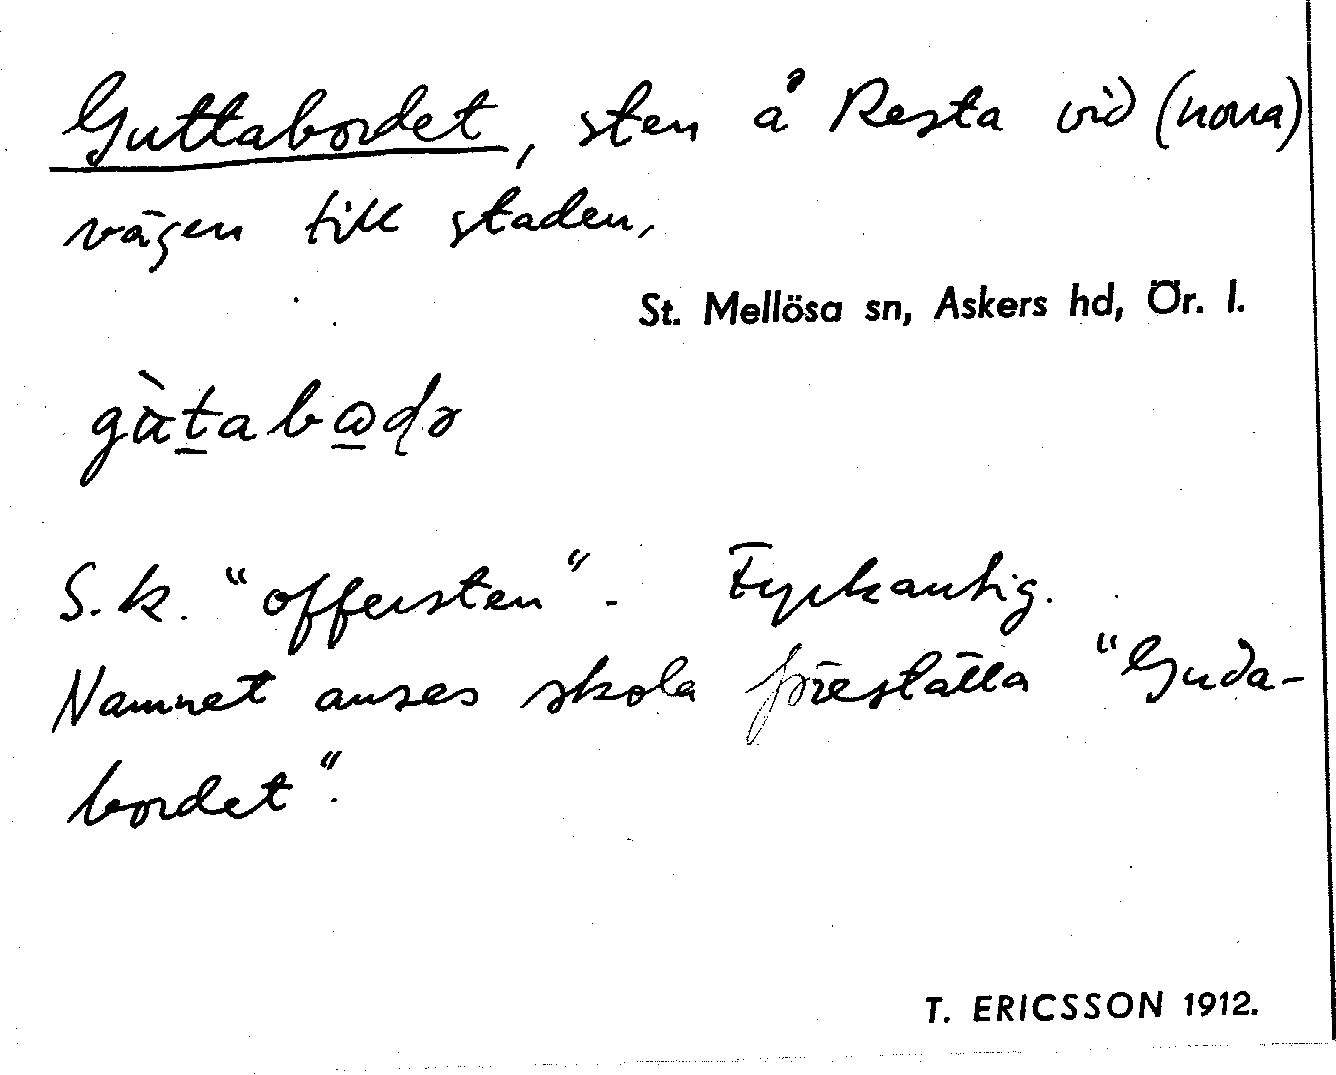 Guttabordet, sten å Resta vid (norra)
vägen till staden,
St. Mellösa sn, Askers hd, Ör. l.
S.k. "offersten". Fyrkantig.
Namnet anses skola föreställa "Guda-
bordet".
T. ERICSSON 1912.